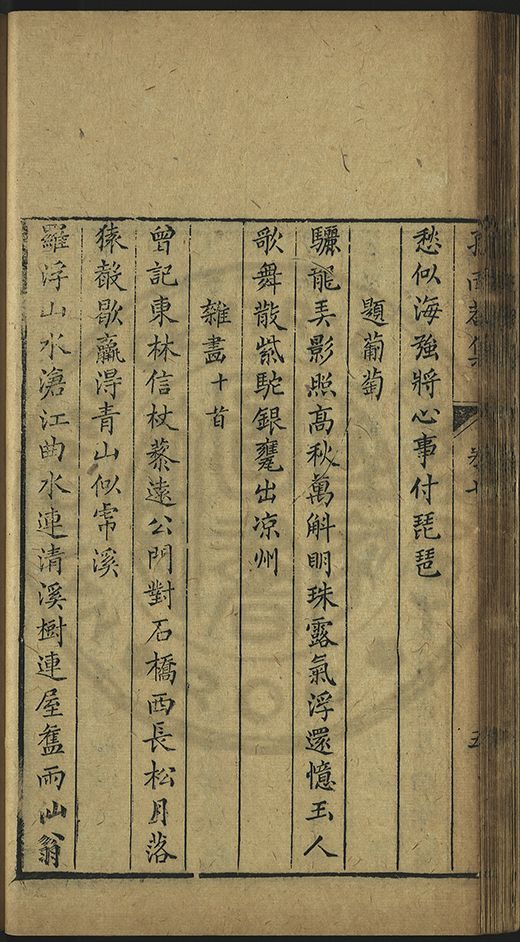 愁似海強將心事付琵琶
題葡萄
驪龍弄影照高秋萬斛明珠露氣浮還憶玉人
歌舞散紫駝銀甕出凉州
雜畫十首
曾記東林信杖藜遠公門對石橋西長松月落
猿聲歇贏得青山似常溪
羅浮山水滄江曲水連清溪樹連屋舊雨仙翁